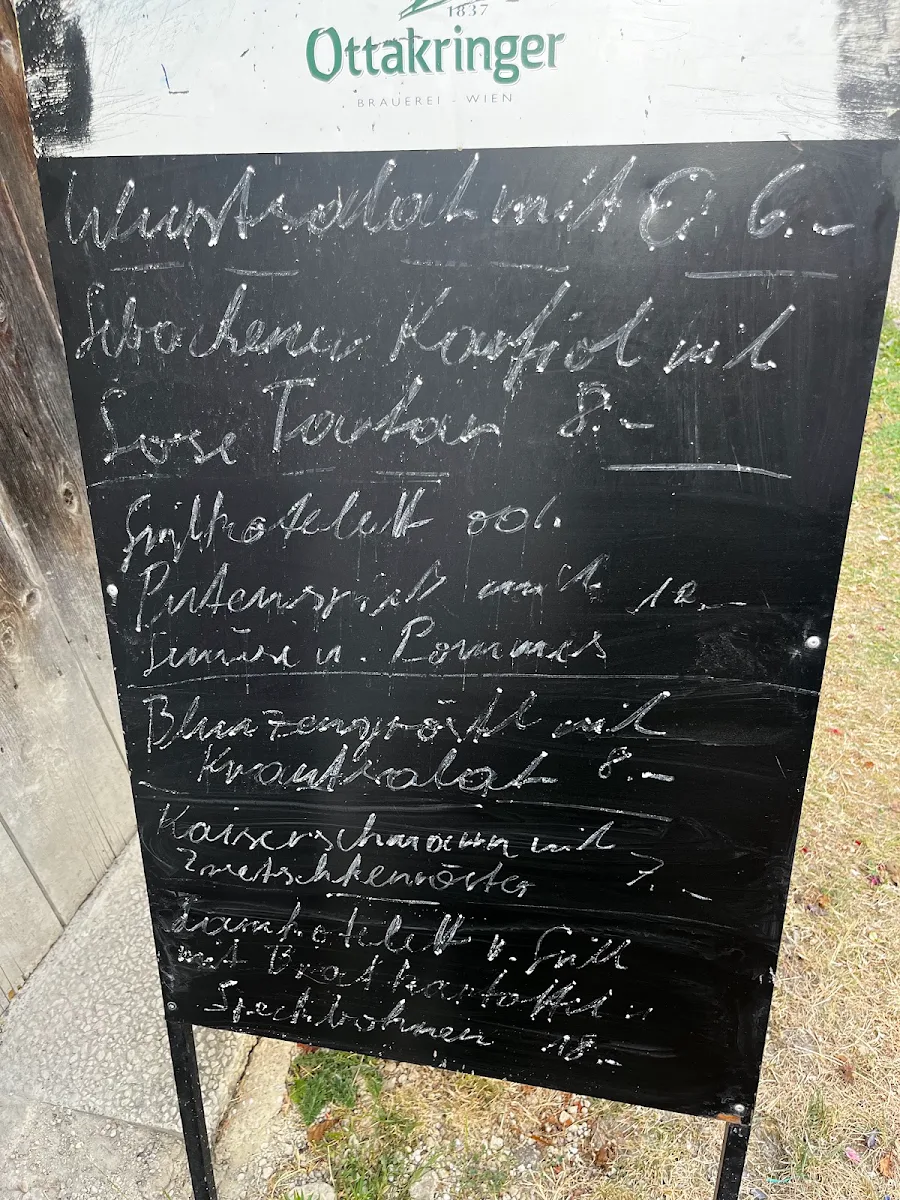 1837
Ottakringer
BRAUEREI - WIEN
Wurstsalat mit G. 6.-
Gebackener Karfiol mit
Sose Tartar 8.-
Grillkotelett od.
Putenspieß mit 12.-
Gemüse u. Pommes
Blunzengröstl mit
Krautsalat 8.-
Kaiserschmarrn mit
Zwetschkenröster 7.-
Lammkotelett v. Grill
mit Bratkartoffel u.
Speckbohnen 18.-